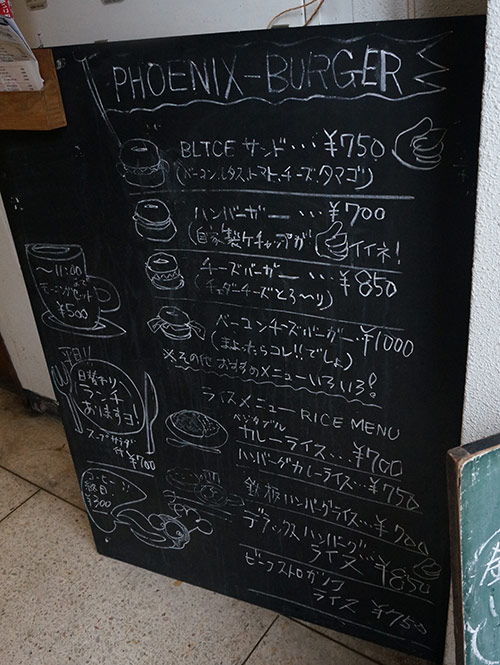 PHOENIX-BURGER
BLTCE サンド・・・¥750
(ベーコン、レタス、トマト、チーズ、タマゴ)
ハンバーガー・・・¥700
(自家製ケチャップが イイネ!
チーズバーガー・・・¥850
(チェダーチーズとろ〜り)
ベーコンチーズバーガー・・・¥1000
(まよったらコレ!!でしょ)
※その他 おすすめメニューいろいろ!
ライスメニュー RICE MENU
ベジタブル
カレーライス・・・¥700
ハンバーグカレーライス・・・¥750
鉄板ハンバーグライス・・・¥700
デラックスハンバーグ
ライス・・・¥850
ビーフストロガノフ
ライス ¥750
〜11:00
まで
モーニングセット
¥500
平日!!
日替わり
ランチ
あります ヨ!
スープサラダ
付 ¥700
コーヒー!!
終日
¥300